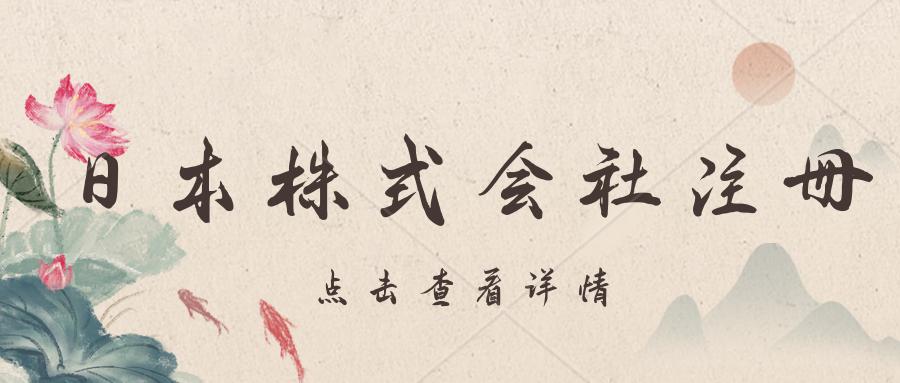 日本株式会社注册
点击查看详情